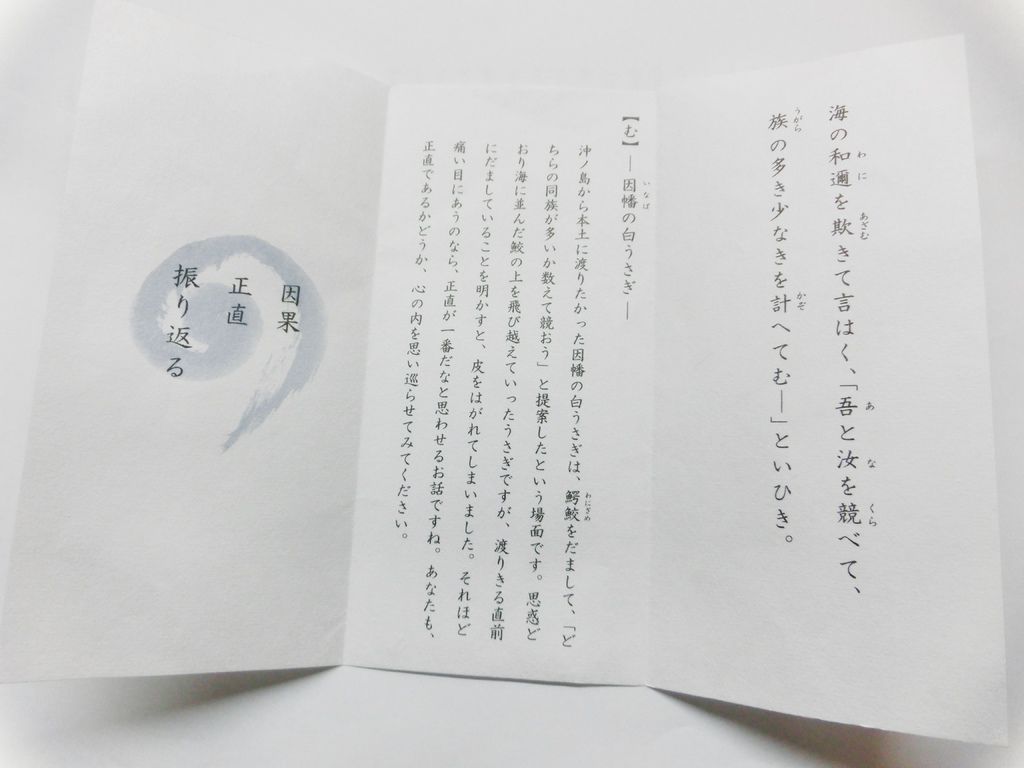 海の和邇を欺きて言はく、「吾と汝を競べて、
族の多き少なきを計へてむ―」といひき。
【む】―因幡の白うさぎ―
沖ノ島から本土に渡りたかった因幡の白うさぎは、鰐鮫をだまして、「ど
ちらの同族が多いか数えて競おう」と提案したという場面です。思惑ど
おり海に並んだ鮫の上を飛び越えていったうさぎですが、渡りきる直前
にだましていることを明かすと、皮をはがれてしまいました。それほど
痛い目にあうのなら、正直が一番だなと思わせるお話ですね。あなたも、
正直であるかどうか、心の内を思い巡らせてみてください。
因果
正直
振り返る